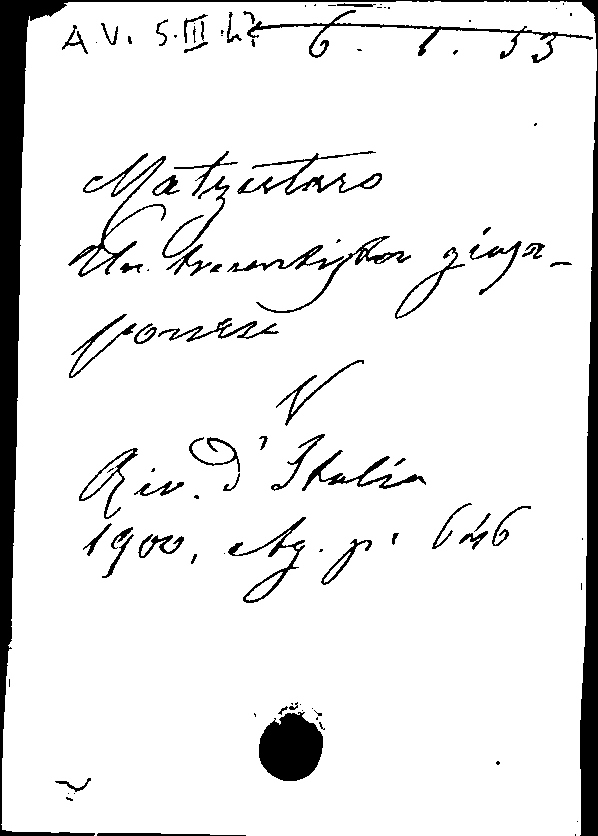 A.V. 5.III.47 6. 1. 53
Matzutaro
Un trecentista giap-
ponese
V
Riv. d'Italia
1900, Ag. p. 646